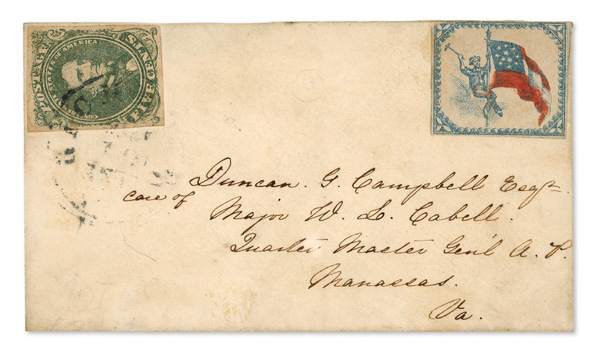 POSTAGE
FIVE CENTS
Duncan. G. Campbell Esqr
care of Major W. L. Cabell.
Quarter Master Gen'l A. P.
Manassas.
Va.